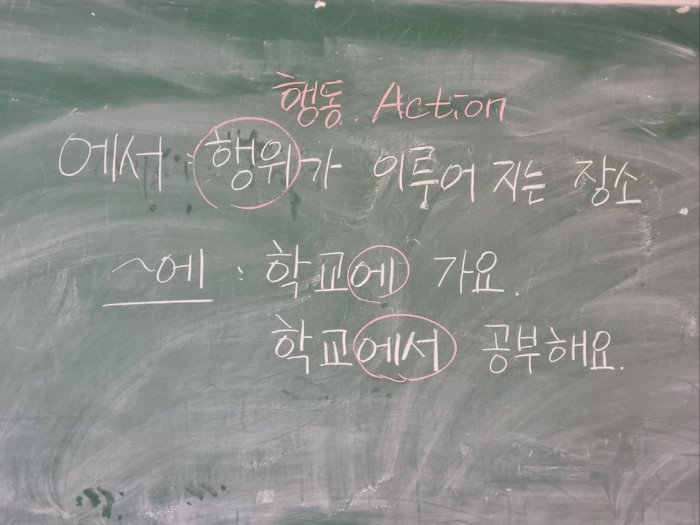 행동. Action
에서 : 행위가 이루어 지는 장소
~에 : 학교에 가요.
학교에서 공부해요.